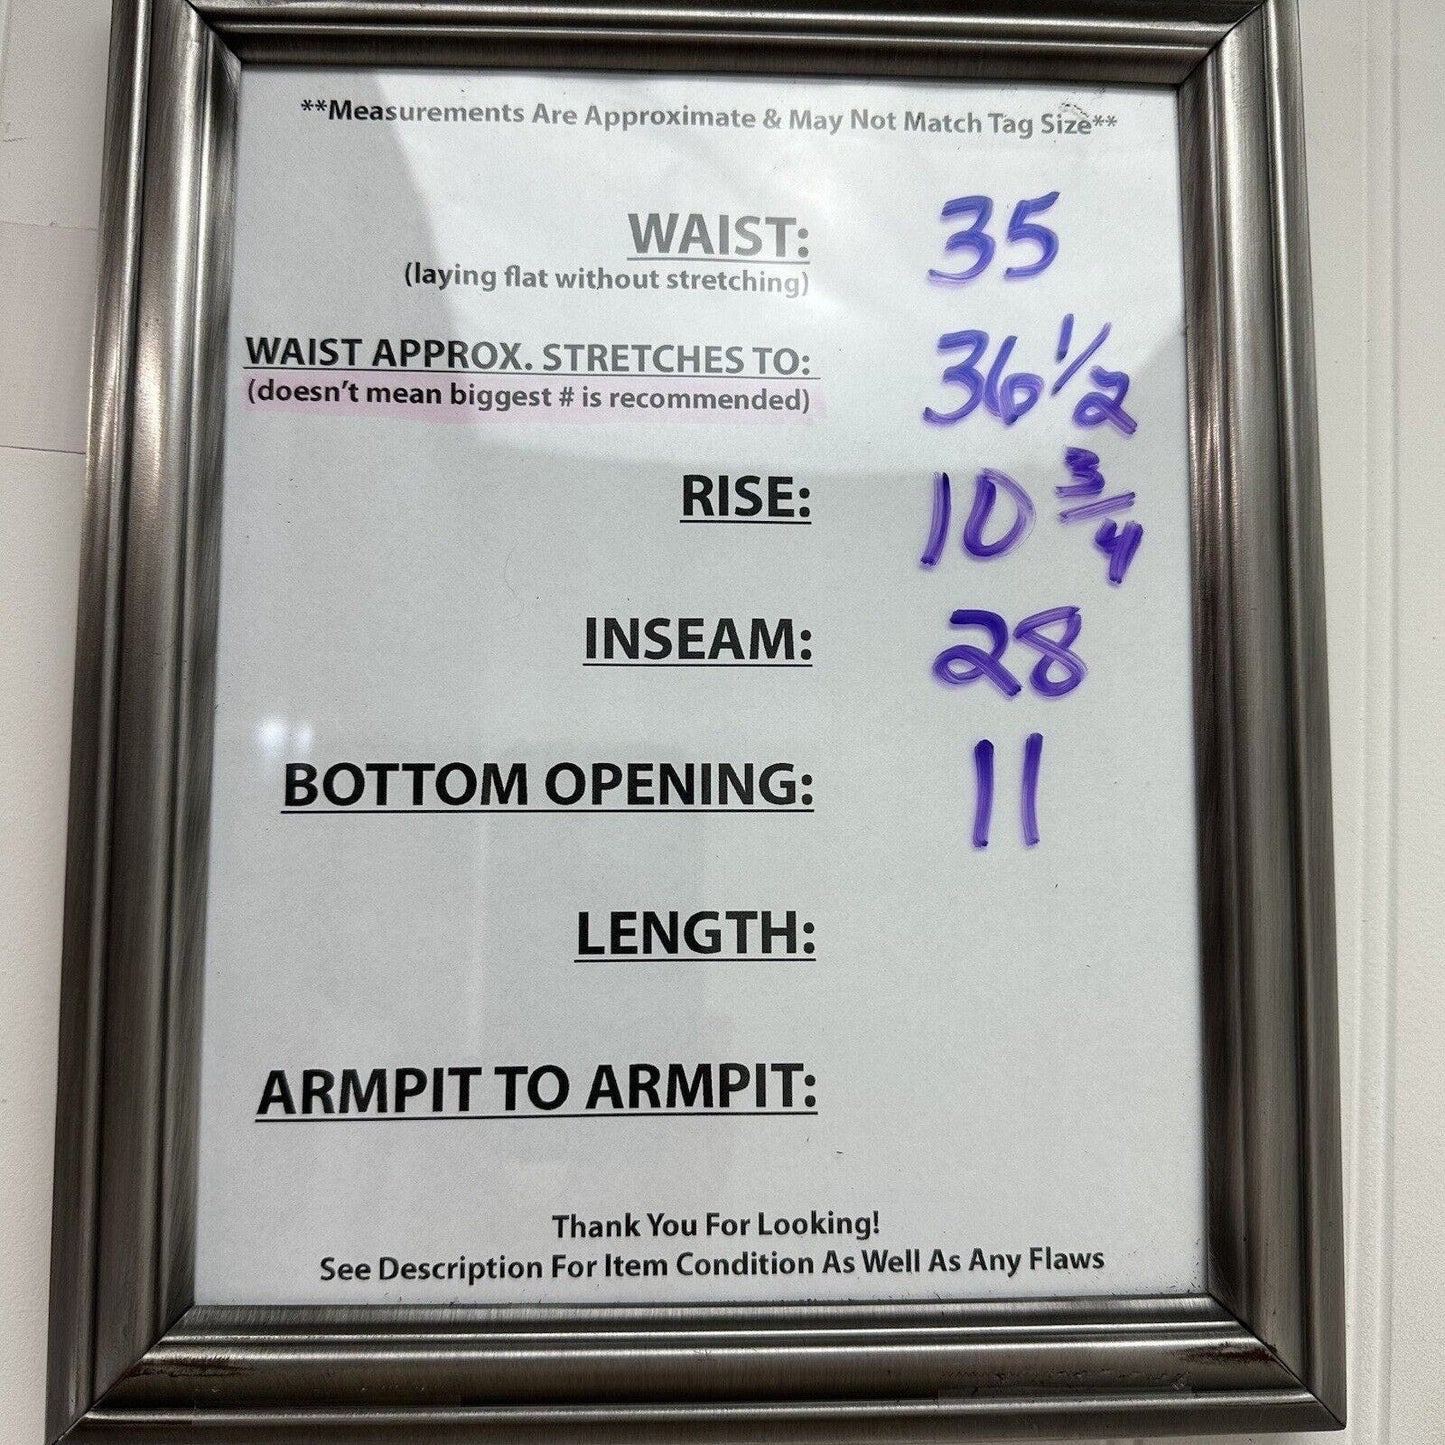 **Measurements Are Approximate & May Not Match Tag Size**
WAIST: 35
(laying flat without stretching)
WAIST APPROX. STRETCHES TO: 36 1/2
(doesn't mean biggest # is recommended)
RISE: 10 3/4
INSEAM: 28
BOTTOM OPENING: 11
LENGTH:
ARMPIT TO ARMPIT:
Thank You For Looking!
See Description For Item Condition As Well As Any Flaws